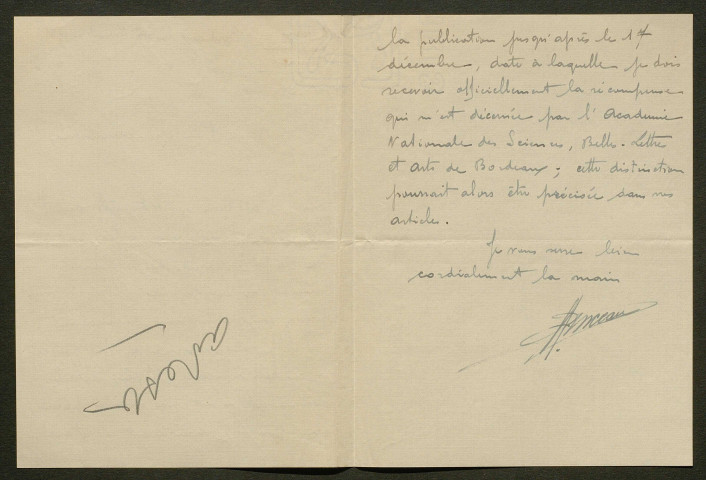 la publication jusqu'après le 17
décembre, date à laquelle je dois
recevoir officiellement la récompense
qui m'est décernée par l'Academie
Nationale des Sciences, Belles-Lettres
et Arts de Bordeaux ; cette distinction
pourrait alors être précisée dans vos
articles.
Je vous serre bien
cordialement la main